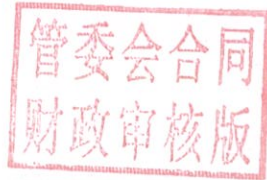 管委会合同
财政审核版